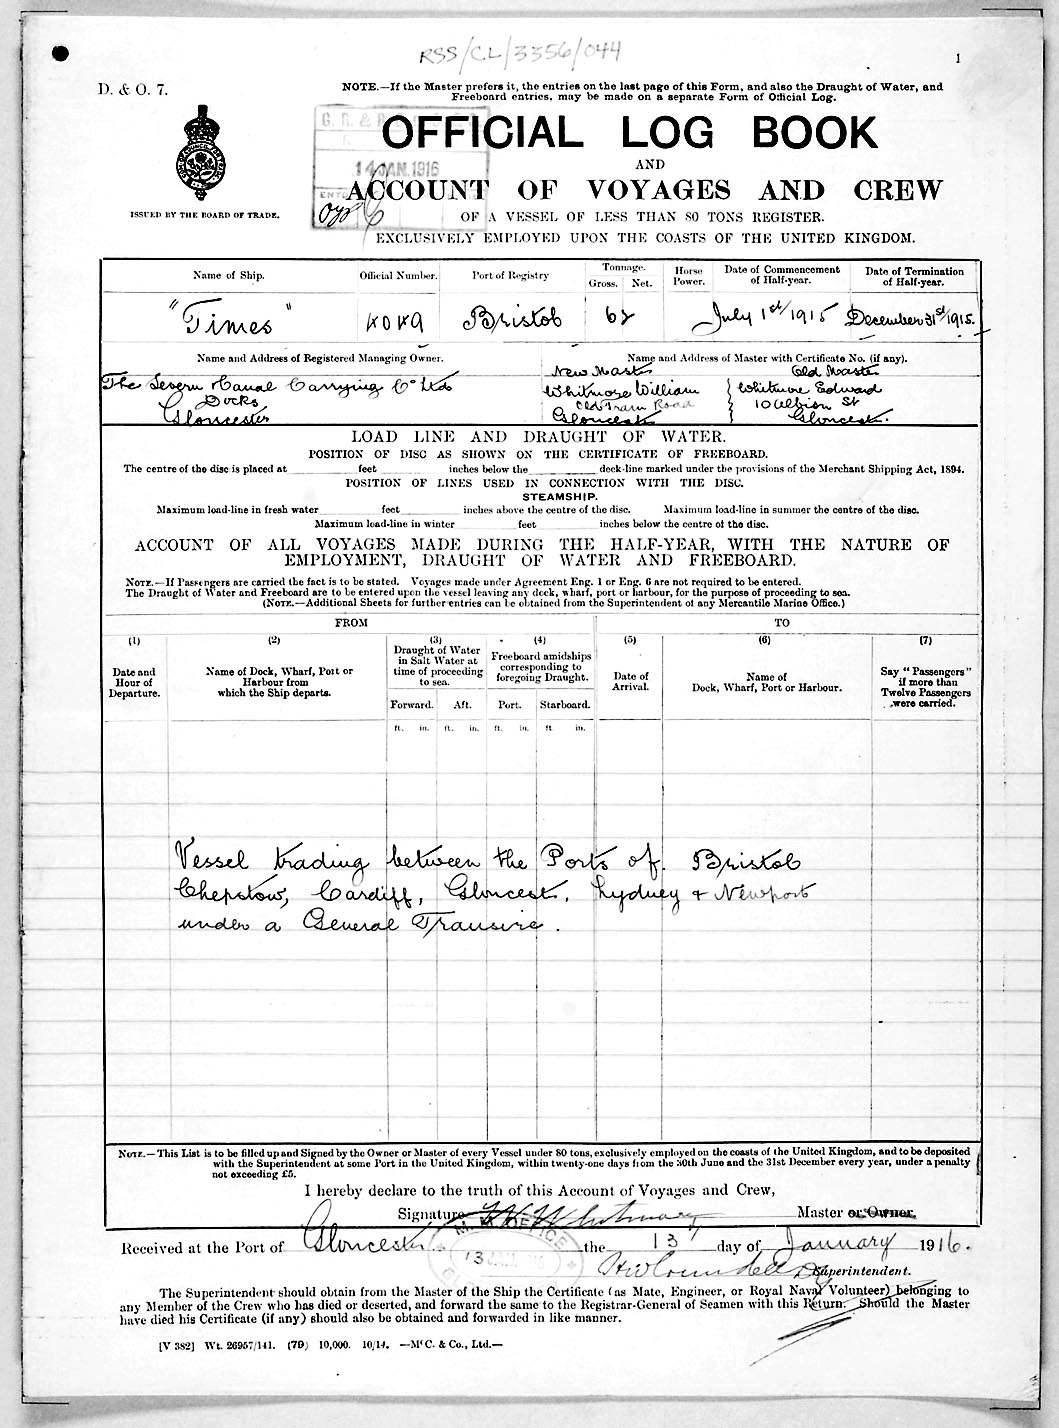 RSS/CL/3356/044
1
D. & O. 7.
NOTE.—If the Master prefers it, the entries on the last page of this Form, and also the Draught of Water, and
Freeboard entries, may be made on a separate Form of Official Log.
OFFICIAL LOG BOOK
14 JAN. 1916
AND
ACCOUNT OF VOYAGES AND CREW
ISSUED BY THE BOARD OF TRADE.
OF A VESSEL OF LESS THAN 80 TONS REGISTER.
EXCLUSIVELY EMPLOYED UPON THE COASTS OF THE UNITED KINGDOM.
Name of Ship. Official Number. Port of Registry Tonnage. Horse Power. Date of Commencement of Half-year. Date of Termination of Half-year.
Gross. Net.
"Times" Bristol 62 July 1st/1915 December 31st/1915.
Name and Address of Registered Managing Owner. Name and Address of Master with Certificate No. (if any).
New Master Old Master
The Severn Canal Carrying Co Ltd Whitmore William Whitmore Edward
Docks Old Tram Road 10 Albion St
Gloucester Gloucester Gloucester.
LOAD LINE AND DRAUGHT OF WATER.
POSITION OF DISC AS SHOWN ON THE CERTIFICATE OF FREEBOARD.
The centre of the disc is placed at feet inches below the deck-line marked under the provisions of the Merchant Shipping Act, 1894.
POSITION OF LINES USED IN CONNECTION WITH THE DISC.
STEAMSHIP.
Maximum load-line in fresh water feet inches above the centre of the disc. Maximum load-line in summer the centre of the disc.
Maximum load-line in winter feet inches below the centre of the disc.
ACCOUNT OF ALL VOYAGES MADE DURING THE HALF-YEAR, WITH THE NATURE OF
EMPLOYMENT, DRAUGHT OF WATER AND FREEBOARD.
NOTE.—If Passengers are carried the fact is to be stated. Voyages made under Agreement Eng. 1 or Eng. 6 are not required to be entered.
The Draught of Water and Freeboard are to be entered upon the vessel leaving any dock, wharf, port or harbour, for the purpose of proceeding to sea.
(NOTE.—Additional Sheets for further entries can be obtained from the Superintendent of any Mercantile Marine Office.)
FROM TO
(1) (2) (3) (4) (5) (6) (7)
Date and Hour of Departure. Name of Dock, Wharf, Port or Harbour from which the Ship departs. Draught of Water in Salt Water at time of proceeding to sea. Freeboard amidships corresponding to foregoing Draught. Date of Arrival. Name of Dock, Wharf, Port or Harbour. Say "Passengers" if more than Twelve Passengers were carried.
Forward. Aft. Port. Starboard.
ft. in. ft. in. ft. in. ft in.
Vessel trading between the Ports of Bristol
Chepstow, Cardiff, Gloucest. Lydney & Newport
under a General Transire.
NOTE.—This List is to be filled up and Signed by the Owner or Master of every Vessel under 80 tons, exclusively employed on the coasts of the United Kingdom, and to be deposited
with the Superintendent at some Port in the United Kingdom, within twenty-one days from the 30th June and the 31st December every year, under a penalty
not exceeding £5.
I hereby declare to the truth of this Account of Voyages and Crew,
Signature W Whitmore Master or Owner.
Received at the Port of Gloucester the 13 day of January 1916.
Superintendent.
The Superintendent should obtain from the Master of the Ship the Certificate (as Mate, Engineer, or Royal Naval Volunteer) belonging to
any Member of the Crew who has died or deserted, and forward the same to the Registrar-General of Seamen with this Return. Should the Master
have died his Certificate (if any) should also be obtained and forwarded in like manner.
[V 382] Wt. 26957/141. (79) 10,000. 10/14. —McC. & Co., Ltd.—